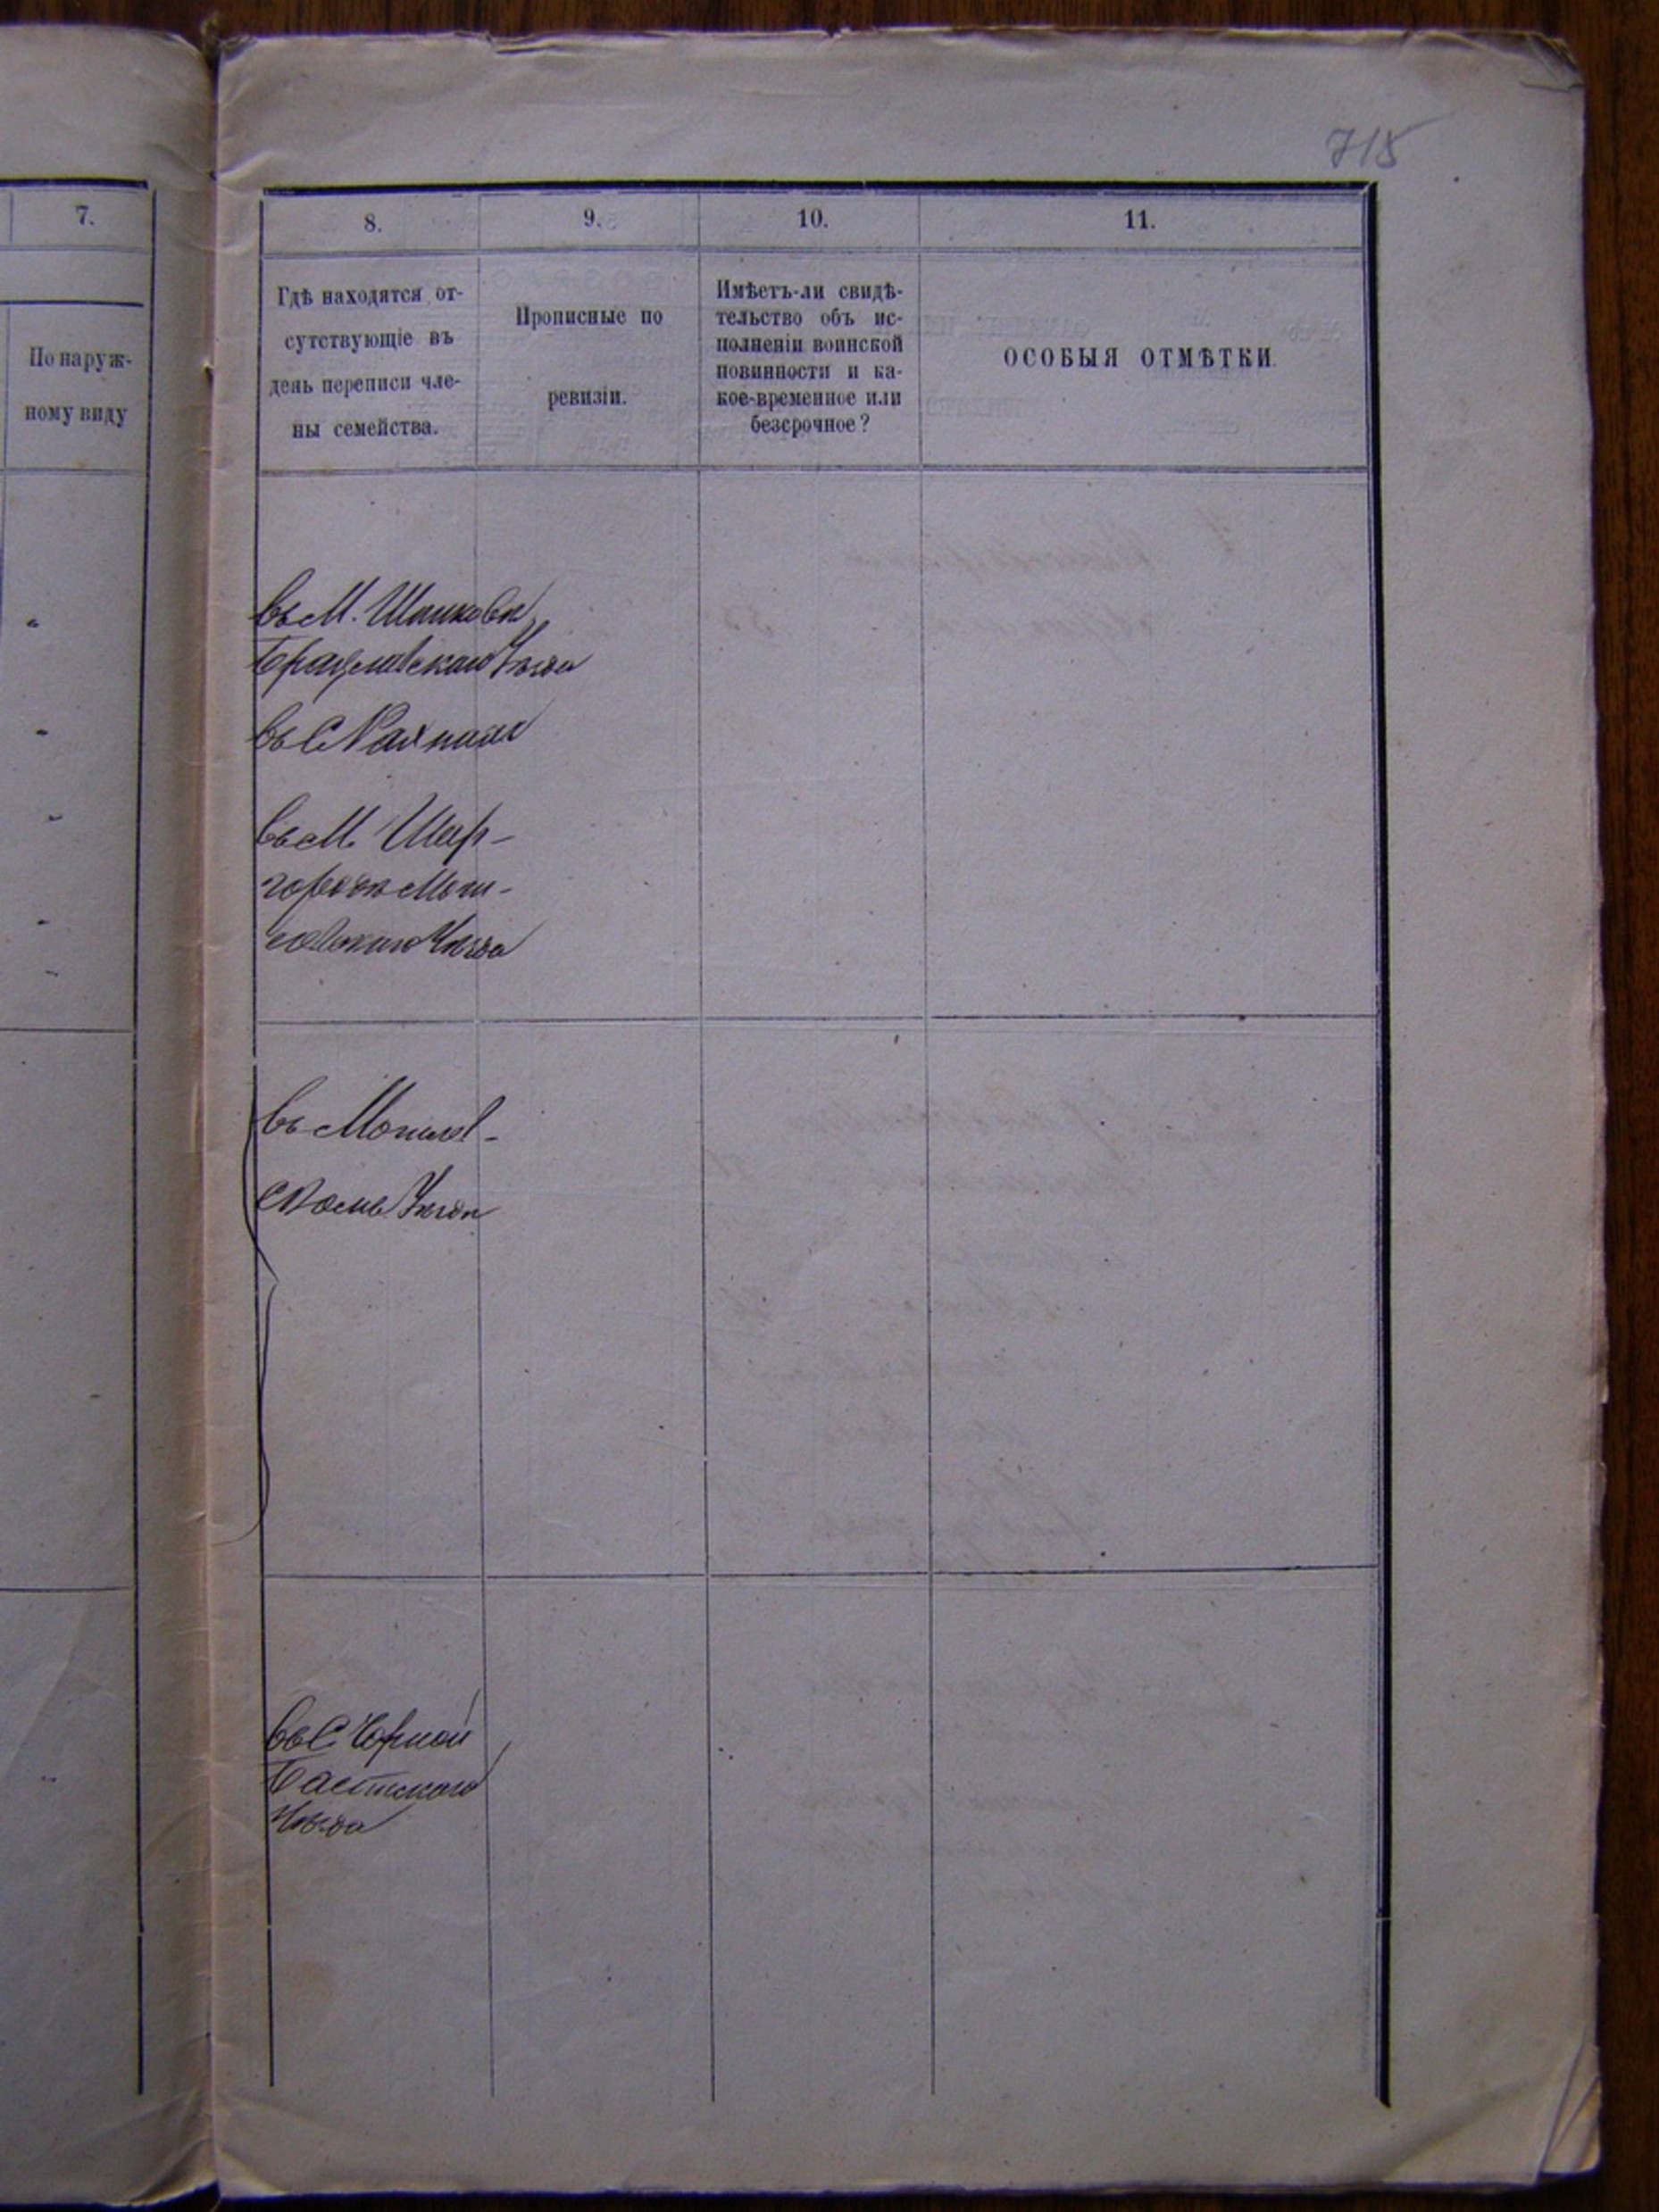 715
7.
8.
9.
10.
11.
По наруж-
ному виду
Гдѣ находятся от-
сутствующіе въ
день переписи чле-
ны семейства.
Прописные по
ревизіи.
Имѣетъ-ли свидѣ-
тельство объ ис-
полненіи воинской
повинности и ка-
кое-временное или
безсрочное?
ОСОБЫЯ ОТМѢТКИ
въ М. Шпиковѣ
Брацлавскаго Уѣзда
въ С
въ М. Шар-
городѣ Моги-
левскаго Уѣзда
въ Могилев-
скомъ Уѣздѣ
въ С Чорной
Балтскаго
Уѣзда